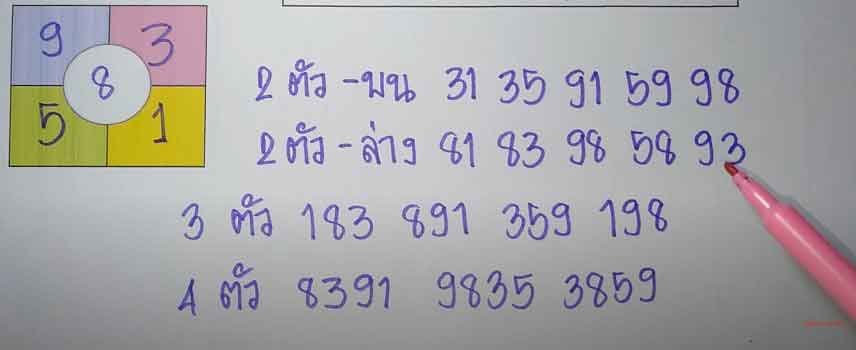 9 3
8
5 1
2 ตัว - บน 31 35 91 59 98
2 ตัว - ล่าง 81 83 98 58 93
3 ตัว 183 891 359 198
4 ตัว 8391 9835 3859